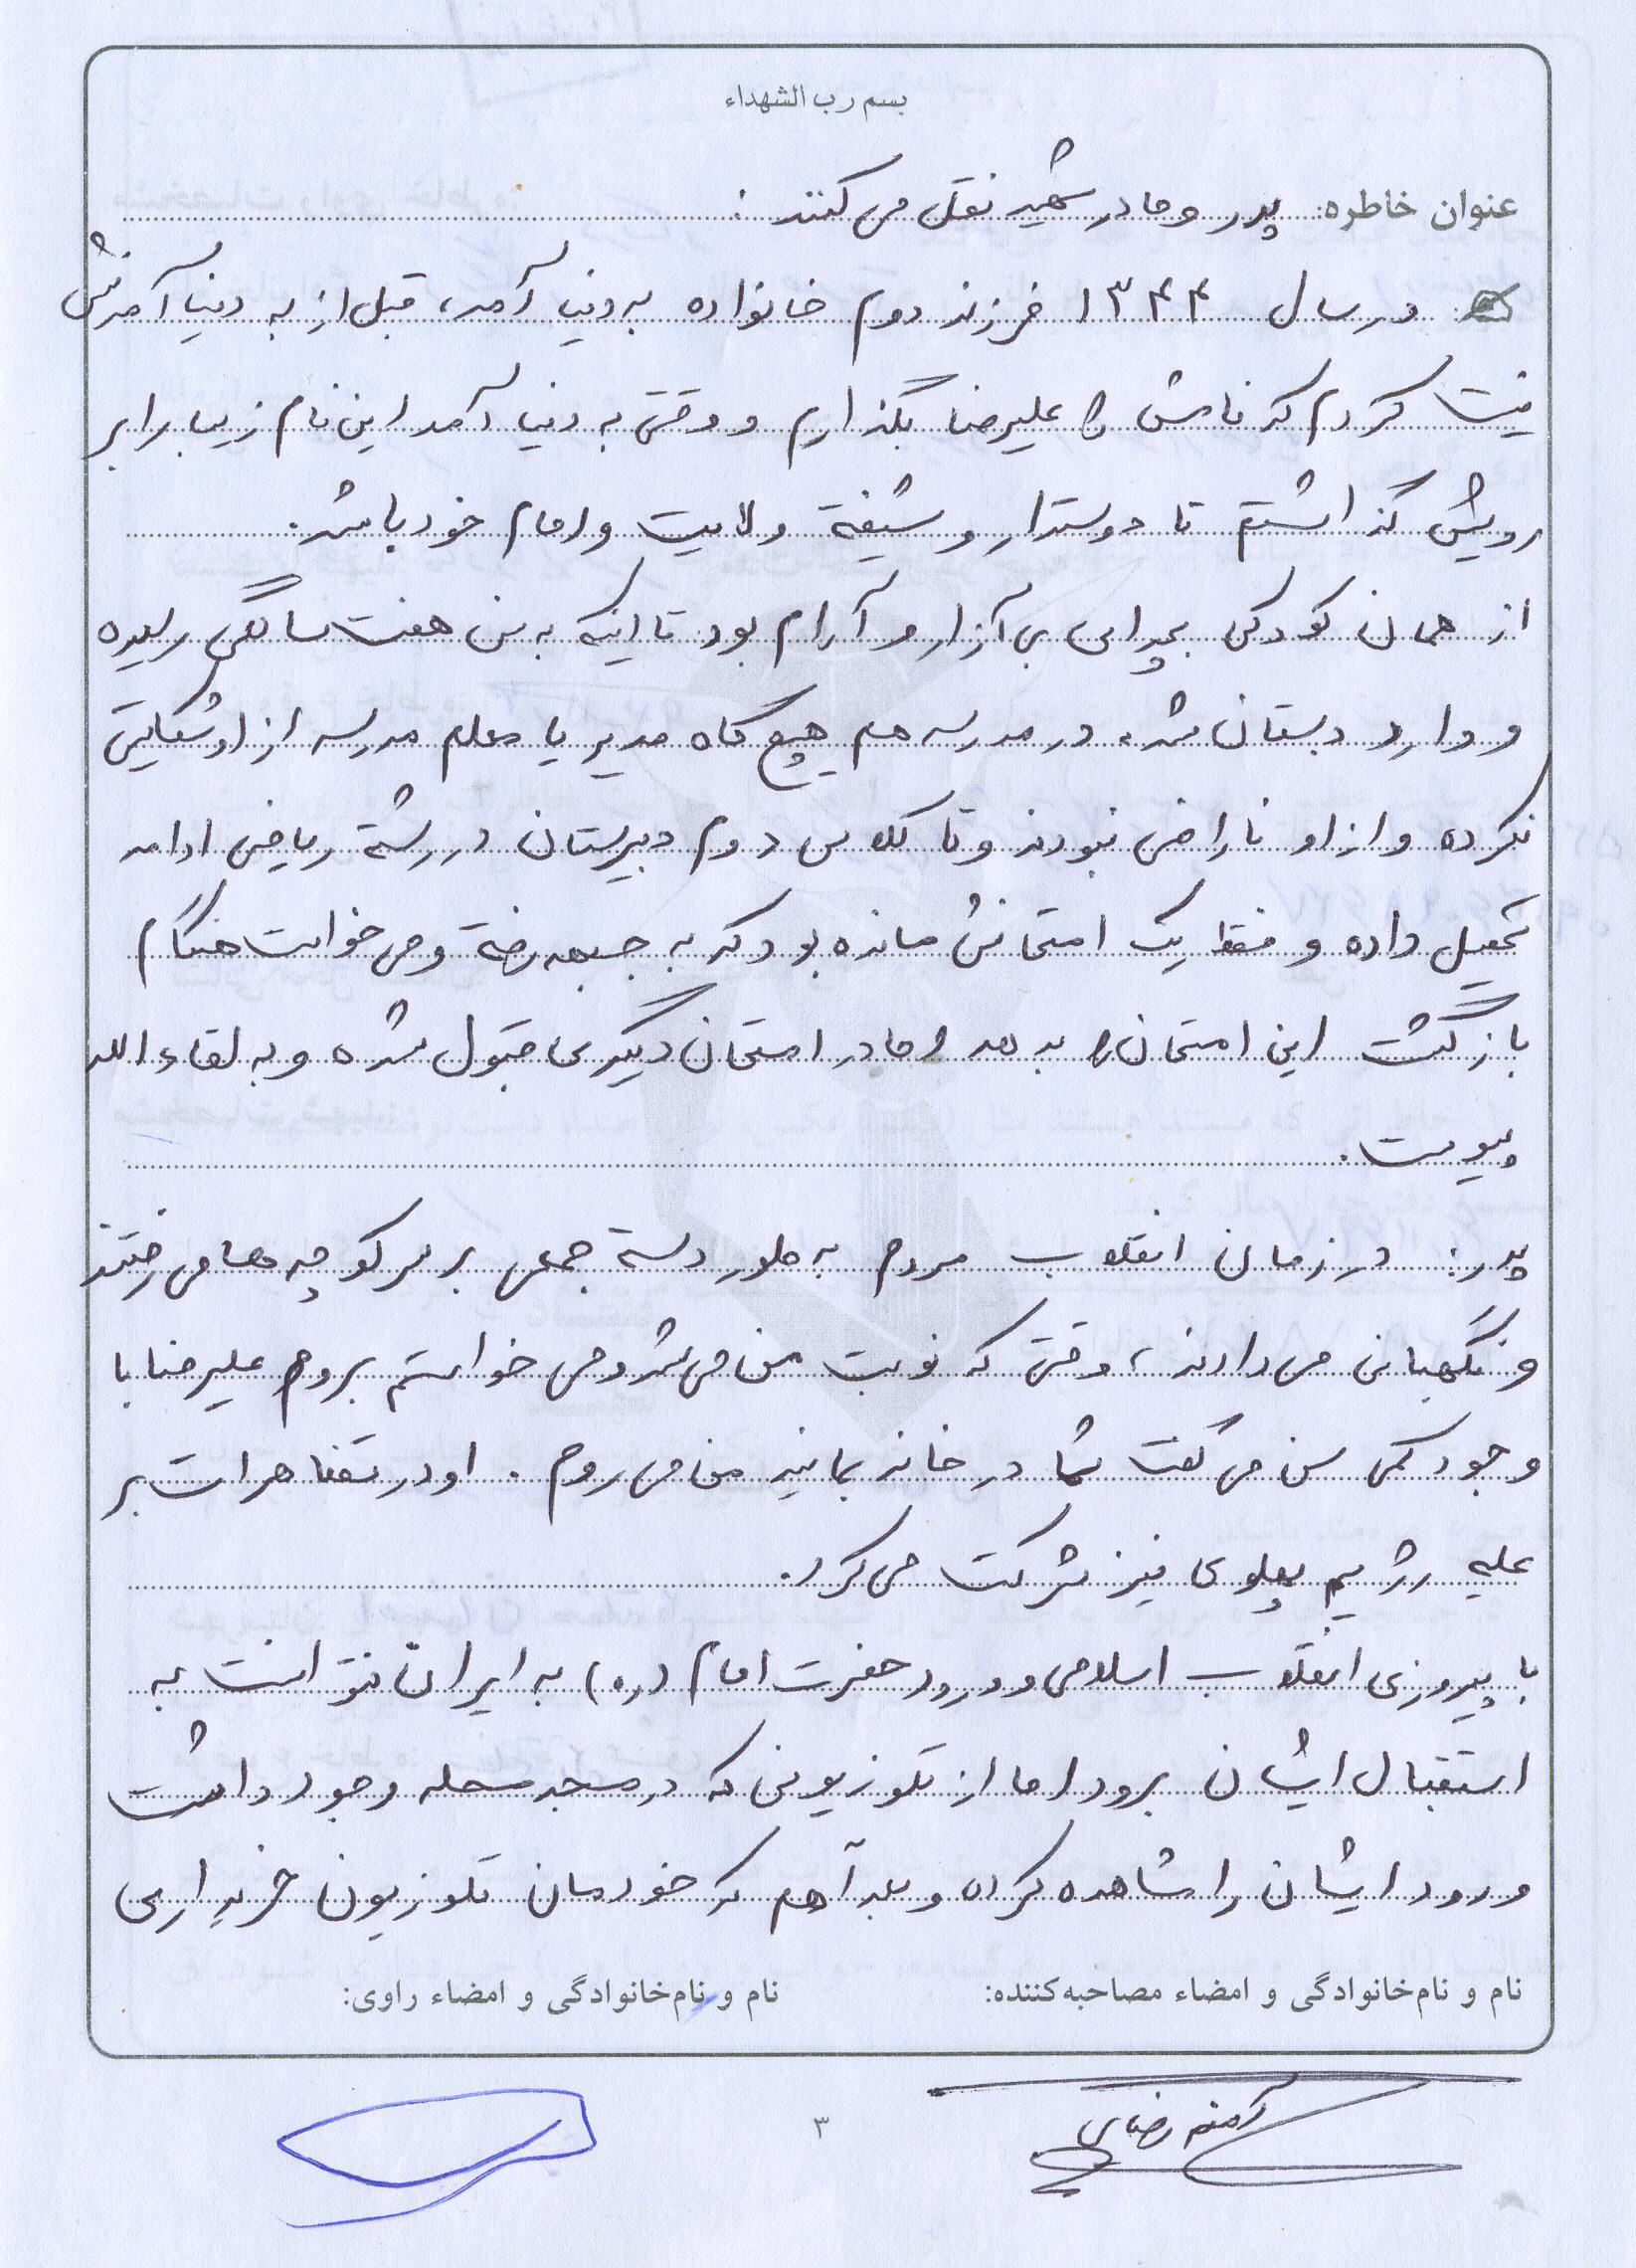 بسم رب الشهداء
عنوان خاطره: پدر و مادر شهید نقل می کنند:
در سال ۱۳۴۴ فرزند دوم خانواده به دنیا آمد، قبل از به دنیا آمدنش
نیت کردم که نامش را علیرضا بگذارم و وقتی به دنیا آمد این نام زیبا را بر
رویش گذاشتم تا دوستدار و شیفته ولایت و امام خود باشد.
از همان کودکی بچه ای بی آزار و آرام بود تا اینکه به سن هفت سالگی رسیده
و وارد دبستان شد. در مدرسه هم هیچ گاه مدیر یا معلم مدرسه از او شکایتی
نکرده و از او ناراضی نبودند و تا کلاس دوم دبیرستان در رشته ریاضی ادامه
تحصیل داده و فقط یک امتحانش مانده بود که به جبهه رفته و می خواست هنگام
بازگشت این امتحان را بدهد اما در امتحان دیگری قبول شده و به لقاء الله
پیوست.
پدر: در زمان انقلاب مردم به طور دسته جمعی بر سر کوچه ها می رفتند
و نگهبانی می دادند، وقتی که نوبت من می شد و می خواستم بروم علیرضا با
وجود کمی سن می گفت شما در خانه بمانید من می روم. او در تظاهرات بر
علیه رژیم پهلوی نیز شرکت می کرد.
با پیروزی انقلاب اسلامی و ورود حضرت امام (ره) به ایران نتوانست به
استقبال ایشان برود اما از تلوزیونی که در مسجد محله وجود داشت
ورود ایشان را مشاهده کرده و بعد آ هم که خودمان تلوزیون خریداری
نام و نام‌خانوادگی و امضاء مصاحبه‌کننده:
نام و نام‌خانوادگی و امضاء راوی:
آمنه رضایی
۳